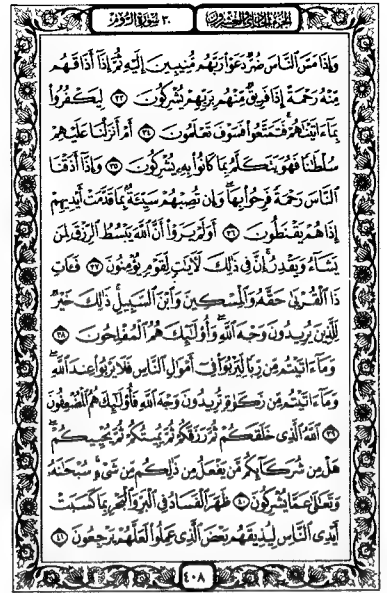 الجزء الحادي والعشرون ٣٠ سورة الروم
وَإِذَا مَسَّ النَّاسَ ضُرٌّ دَعَوْا رَبَّهُم مُّنِيبِينَ إِلَيْهِ ثُمَّ إِذَا أَذَاقَهُم
مِّنْهُ رَحْمَةً إِذَا فَرِيقٌ مِّنْهُم بِرَبِّهِمْ يُشْرِكُونَ ﴿٣٣﴾ لِيَكْفُرُوا
بِمَا ءَاتَيْنَاهُمْ فَتَمَتَّعُوا فَسَوْفَ تَعْلَمُونَ ﴿٣٤﴾ أَمْ أَنزَلْنَا عَلَيْهِمْ
سُلْطَانًا فَهُوَ يَتَكَلَّمُ بِمَا كَانُوا بِهِ يُشْرِكُونَ ﴿٣٥﴾ وَإِذَا أَذَقْنَا
النَّاسَ رَحْمَةً فَرِحُوا بِهَا وَإِن تُصِبْهُمْ سَيِّئَةٌ بِمَا قَدَّمَتْ أَيْدِيهِمْ
إِذَا هُمْ يَقْنَطُونَ ﴿٣٦﴾ أَوَلَمْ يَرَوْا أَنَّ اللَّهَ يَبْسُطُ الرِّزْقَ لِمَن
يَشَاءُ وَيَقْدِرُ إِنَّ فِي ذَلِكَ لَآيَاتٍ لِّقَوْمٍ يُؤْمِنُونَ ﴿٣٧﴾ فَآتِ
ذَا الْقُرْبَى حَقَّهُ وَالْمِسْكِينَ وَابْنَ السَّبِيلِ ذَلِكَ خَيْرٌ
لِّلَّذِينَ يُرِيدُونَ وَجْهَ اللَّهِ وَأُولَئِكَ هُمُ الْمُفْلِحُونَ ﴿٣٨﴾
وَمَا ءَاتَيْتُم مِّن رِّبًا لِّيَرْبُوَا فِي أَمْوَالِ النَّاسِ فَلَا يَرْبُوا عِندَ اللَّهِ
وَمَا ءَاتَيْتُم مِّن زَكَوٰةٍ تُرِيدُونَ وَجْهَ اللَّهِ فَأُولَئِكَ هُمُ الْمُضْعِفُونَ
﴿٣٩﴾ اللَّهُ الَّذِي خَلَقَكُمْ ثُمَّ رَزَقَكُمْ ثُمَّ يُمِيتُكُمْ ثُمَّ يُحْيِيكُمْ
هَلْ مِن شُرَكَائِكُم مَّن يَفْعَلُ مِن ذَلِكُم مِّن شَيْءٍ سُبْحَانَهُ
وَتَعَالَى عَمَّا يُشْرِكُونَ ﴿٤٠﴾ ظَهَرَ الْفَسَادُ فِي الْبَرِّ وَالْبَحْرِ بِمَا كَسَبَتْ
أَيْدِي النَّاسِ لِيُذِيقَهُم بَعْضَ الَّذِي عَمِلُوا لَعَلَّهُمْ يَرْجِعُونَ ﴿٤١﴾
٤٠٨